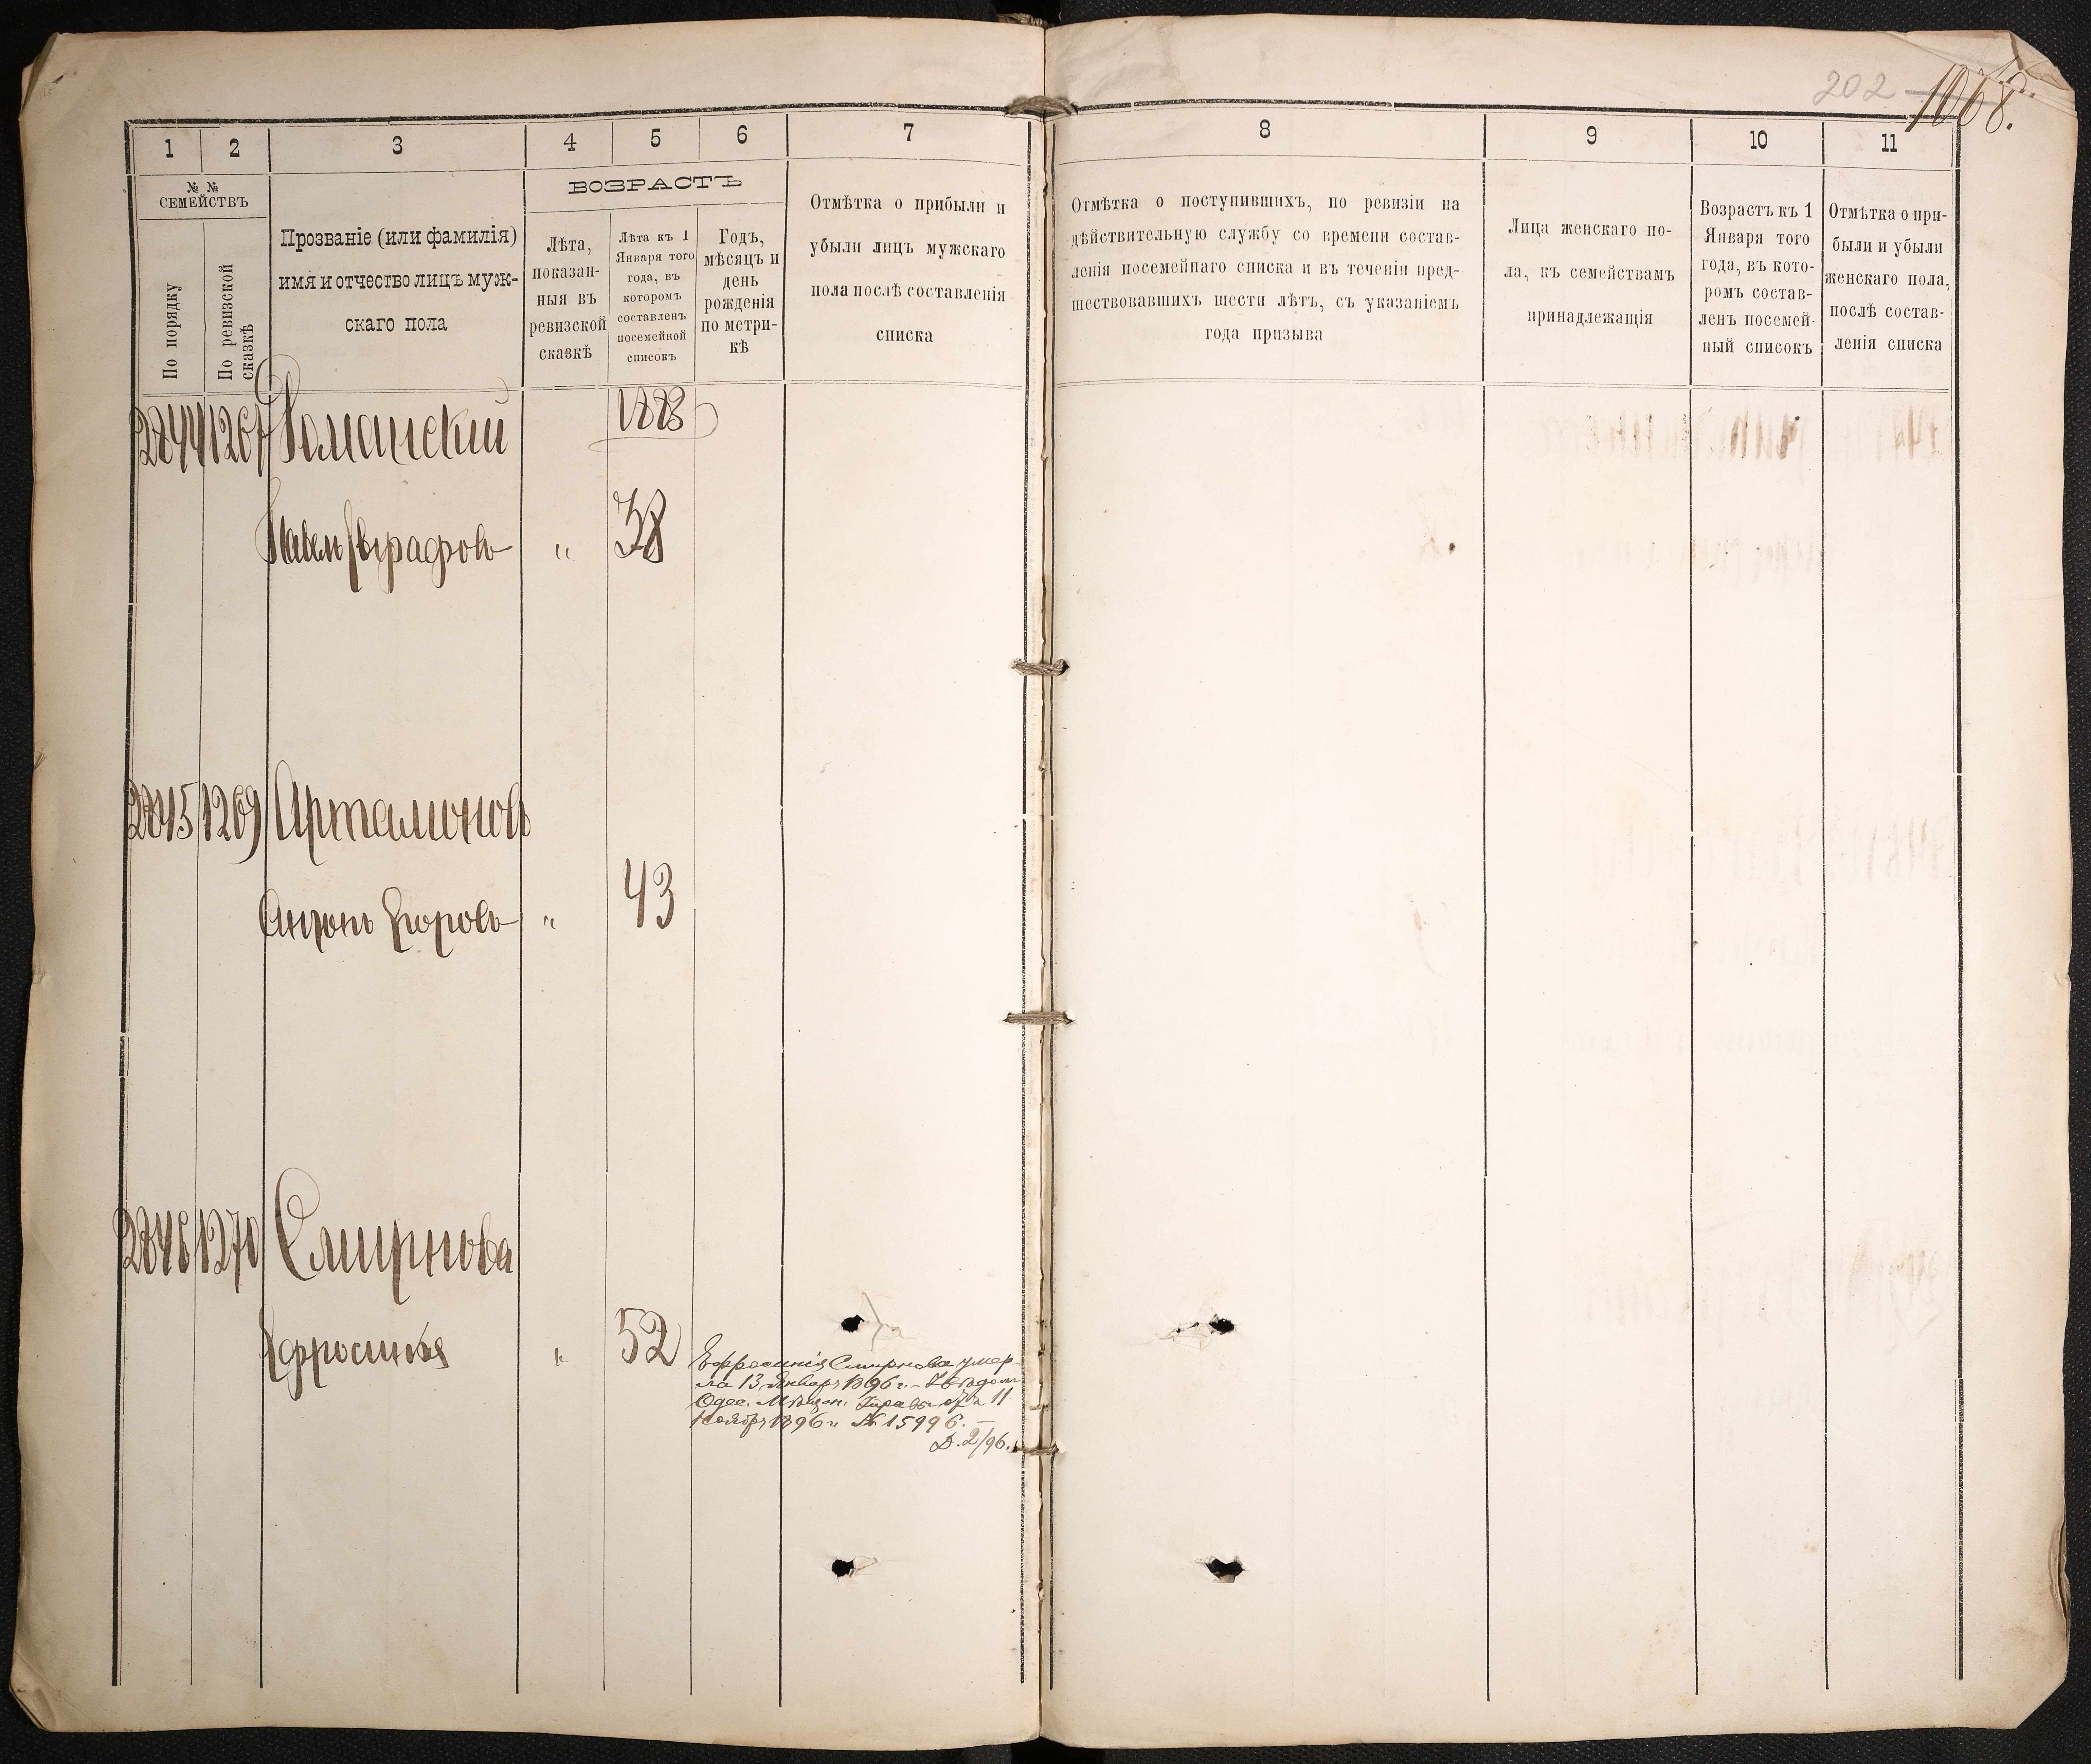 202 1068.
1
2
3
4
5
6
7
8
9
10
11
№ №
СЕМЕЙСТВЪ
По порядку
По ревизской
сказкѣ
Прозваніе (или фамилія)
имя и отчество лицъ муж-
скаго пола
ВОЗРАСТЪ
Лѣта,
показан-
ныя въ
ревизской
сказкѣ
Лѣта къ 1
Января того
года, въ
которомъ
составленъ
посемейной
списокъ
Годъ,
мѣсяцъ и
день
рожденія
по метри-
кѣ
Отмѣтка о прибыли и
убыли лицъ мужскаго
пола послѣ составленія
списка
Отмѣтка о поступившихъ, по ревизіи на
дѣйствительную службу со времени состав-
ленія посемейнаго списка и въ теченіи пред-
шествовавшихъ шести лѣтъ, съ указаніемъ
года призыва
Лица женскаго по-
ла, къ семействамъ
принадлежащія
Возрастъ къ 1
Января того
года, въ кото-
ромъ состав-
ленъ посемей-
ный списокъ
Отмѣтка о при-
были и убыли
женскаго пола,
послѣ состав-
ленія списка
2844 Романский 1883
Павелъ Евграфовъ „ 38
2845 1269 Артамоновъ
Антонъ Егоровъ „ 43
2846 1270 Смирнова
Ефросинія „ 52
Ефросинія Смирнова умер-
ла 13 Января 1896 г. -
Одес. Мѣщан. Управы отъ 11
Ноября 1896 г. № 15996. —
Д. 2/96.